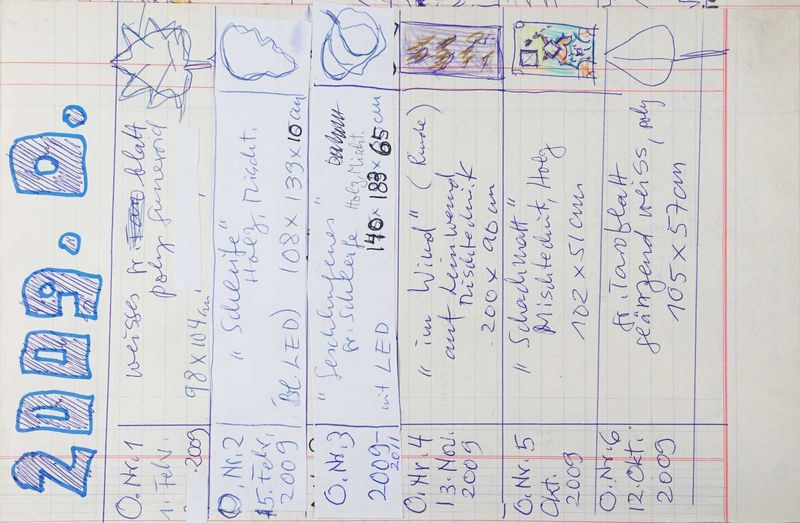 2009. O.
O.Nr.1
1. Febr.
2009
weisses gr. blatt
poly
98 x 104 cm
O.Nr.2
15. Febr.
2009
"Schleife"
Holz, Mischt.
(BL. LED) 108 x 139 x 10 cm
O.Nr.3
2009-
2011
"Geschliffenes"
gr. Schleife Holz Mischt.
mit LED 140 x 189 x 65 cm
O.Nr.4
13. Nov.
2009
"im Wind" (Rinde)
auf Leinwand
Mischtechnik
200 x 90 cm
O.Nr.5
Okt.
2009
"Schachmatt"
Mischtechnik, Holz
102 x 51 cm
O.Nr.6
12. Okt.
2009
gr. Taroblatt
glänzend weiss, poly
105 x 57 cm